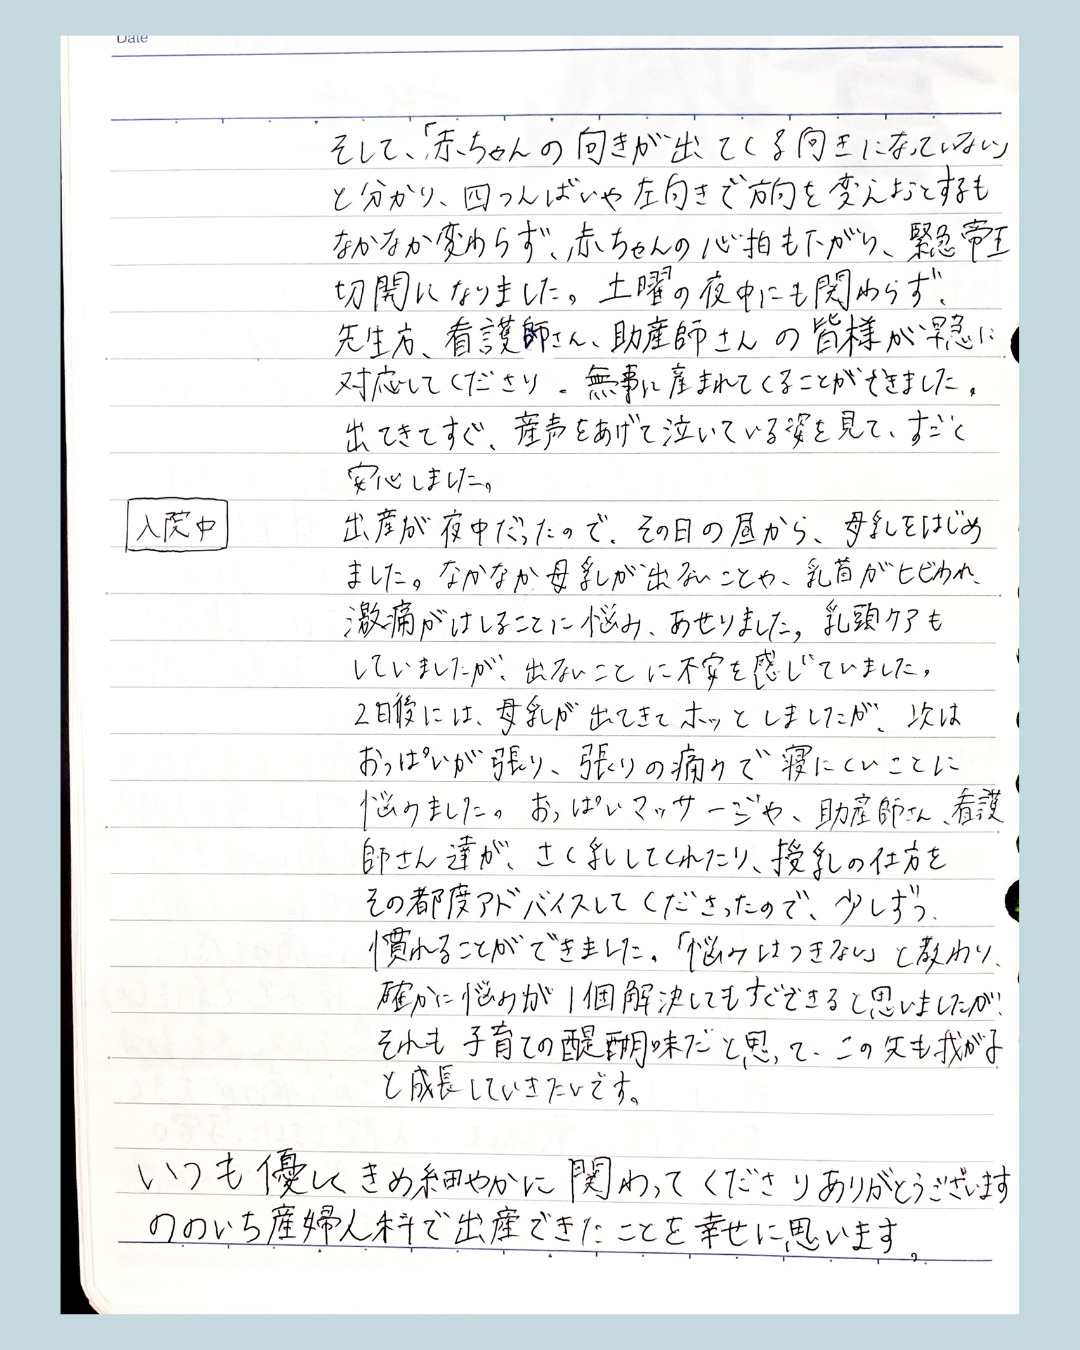 Date
そして、「赤ちゃんの向きが出てくる向きになっていない」
と分かり、四つんばいや左向きで方向を変えおとするも
なかなか変わらず、赤ちゃんの心拍も下がり、緊急帝王
切開になりました。土曜の夜中にも関わらず、
先生方、看護師さん、助産師さんの皆様が早急に
対応してくださり、無事に産まれてくることができました。
出てきてすぐ、産声をあげて泣いている姿を見て、すごく
安心しました。
入院中
出産が夜中だったので、その日の昼から、母乳をはじめ
ました。なかなか母乳が出ないことや、乳首がヒビわれ、
激痛がはしることに悩み、あせりました。乳頭ケアも
していましたが、出ないことに不安を感じていました。
2日後には、母乳が出てきてホッとしましたが、次は
おっぱいが張り、張りの痛みで寝にくいことに
悩みました。おっぱいマッサージや、助産師さん、看護
師さん達が、さく乳してくれたり、授乳の仕方を
その都度アドバイスしてくださったので、少しずつ、
慣れることができました。「悩みはつきない」と教わり、
確かに悩みが1個解決してもすぐできると思いましたが、
それも子育ての醍醐味だと思って、この先も我が子
と成長していきたいです。
いつも優しくきめ細やかに関わってくださりありがとうございます
ののいち産婦人科で出産できたことを幸せに思います。